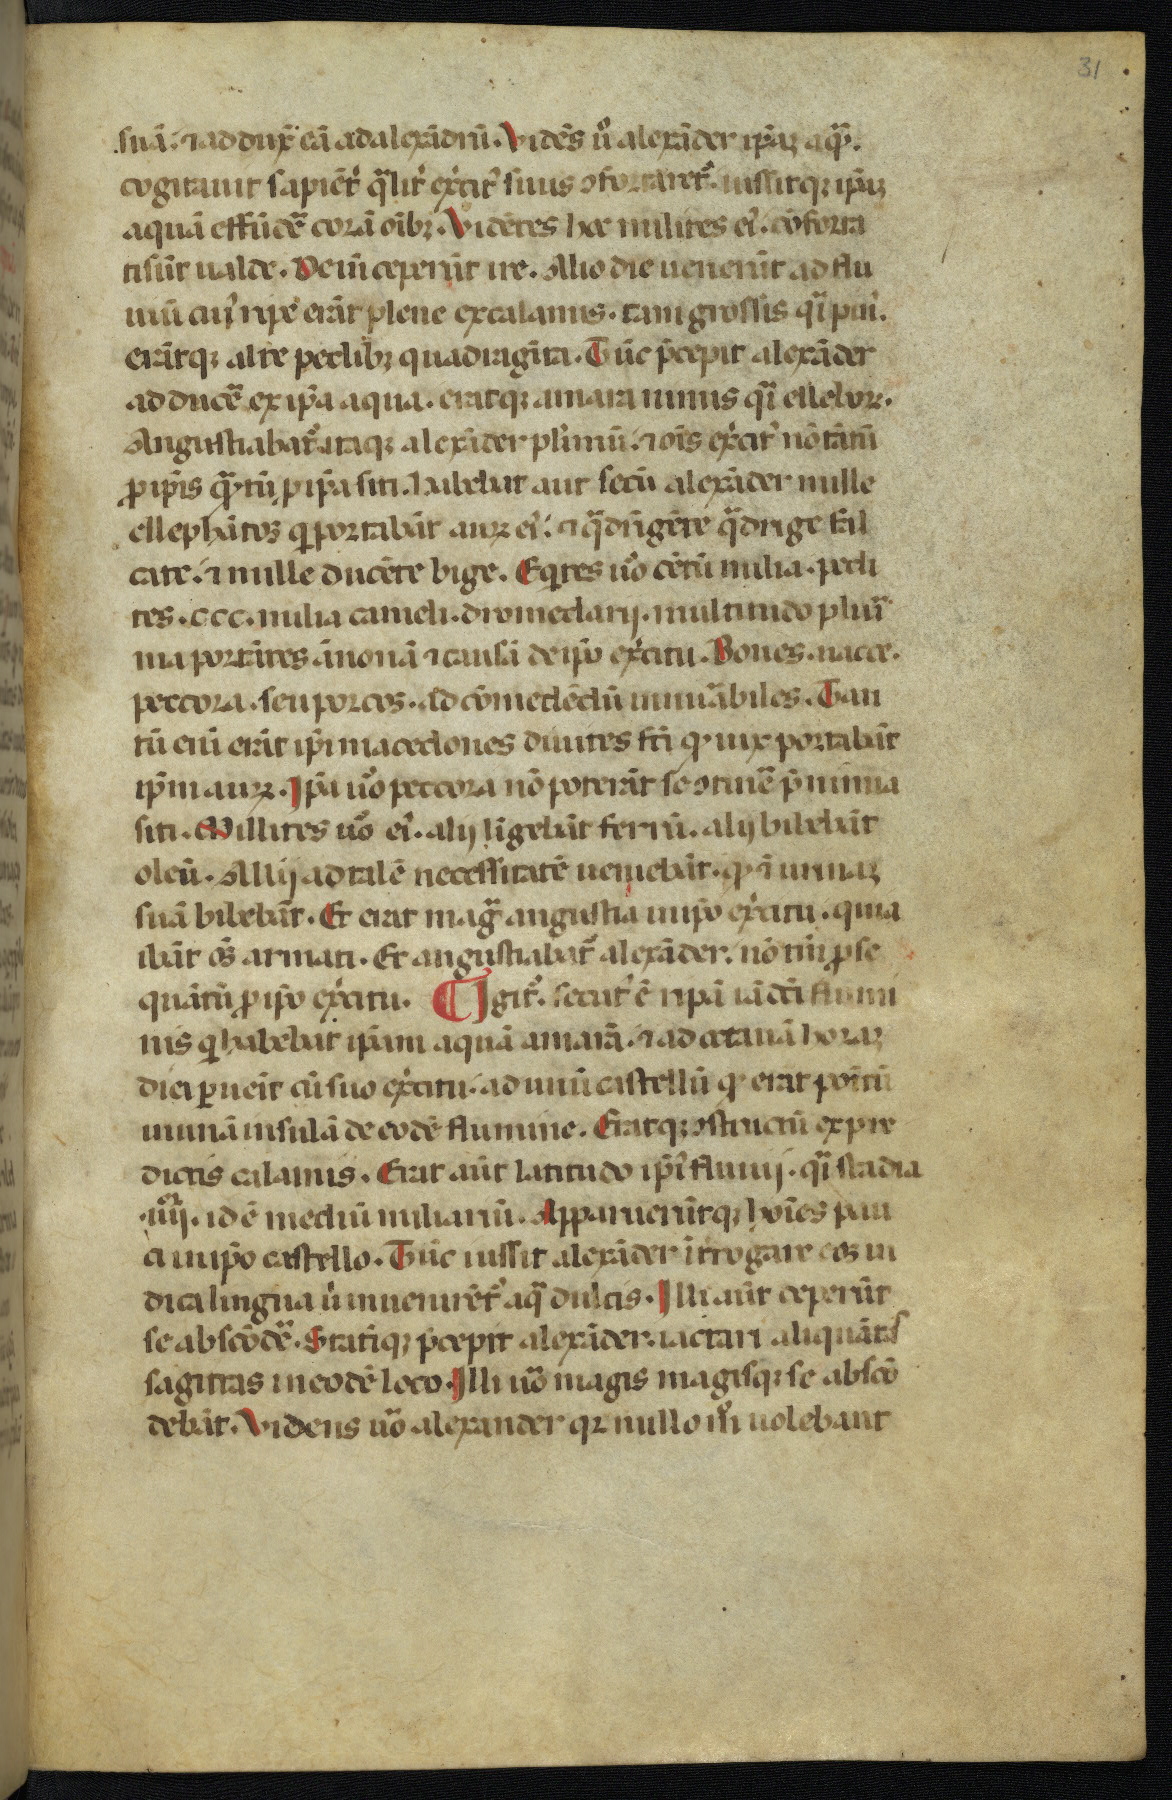 31
suā. ⁊ ad dux̄ eā ad alexādrū. Vidēs u͛o alexāder ip̄aꝫ aq̄ᷓ.
cogitauit sapiēt͛ qᷓlit͛ ex͛cit͛ suus ꝯfortaret᷑. iussitqꝫ ip̄aꝫ
aquā effūdē͛ corā oībꝫ. Vidētes hec milites ei͛. cōforta
ti sūt ualde. Deīn ceperūt ire. Alio die uenerūt ad flu
uiū cui͛ ripe erāt plene ex calamis. tam grossis qᷓi pini.
erātqꝫ alte pedibꝫ quadragīta. Tūc p̄cepit alexāder
adducē͛ ex ip̄a aqua. eratqꝫ amara nimis qᷓi elleborꝰ.
Angustiabat᷑ itaqꝫ alexāder plīmū. ⁊ oīs ex͛cit͛ nō tātū
ꝓ ip̄is qᷓtū ꝓ ip̄a siti. habebat aut secū alexāder mille
ellephātos qͥ portabāt aurꝫ ei͛. ⁊ qᷓdrīgēte qᷓdrige fal
cate. ⁊ mille ducēte bige. Eqͥtes u͛o cētū milia. pedi
tes. ccc. milia cameli. dromedarij. multitudo pluri
ma portātes ānonā ⁊ causā de ip̄o ex͛citu. Boues. uacce.
peccora. seu porcos. ad cōmedēdū innuᷓbiles. Tan
tū eni erāt ip̄i macedones diuites fc̄i qͥ uix portabāt
ip̄m aurꝫ. Ip̄a u͛o peccora nō poterāt se ꝯtinē͛ p̄ nimia
siti. Millites u͛o ei͛. alij ligebāt ferrū. alij bibebāt
oleū. Allij ad talē necessitatē ueniebāt. qͥ ⁊ urinaꝫ
suā bibebāt. Et erat magᷓ angustia in ip̄o ex͛citu. quia
ibāt oēs armati. Et angustiabat᷑ alexāder. nō tm̄ ꝓ se
quātū ꝓ ip̄o ex͛citu. Igit᷑. secut͛ ē ripā iā dc̄i flumi
nis qͥ habebat ip̄am aquā amarā. ⁊ ad octauā horaꝫ
diei ꝑueīt cū suo ex͛citu. ad unū castellū qͥ erat poītū
in unā insulā de eodē flumine. Eratqꝫ ꝯstructū ex pre
dictis calamis. Erat aūt latitudo ip̄i͛ fluuij. qᷓi stadia
.iiij. id ē mediū miliariū. Apparuerūtqꝫ hoīes pau
ci in ip̄o castello. Tūc iussit alexāder ītrogare eos in
dica lingua u͛ inueniret᷑ aqᷓ dulcis. Illi aūt ceperūt
se abscōdē͛. Statīqꝫ p̄cepit alexāder. iactari aliquātas
sagittas in eodē loco. Illi u͛o magis magisqꝫ se abscō
debāt. Videns u͛o alexander qꝫ nullo m͛ uolebant